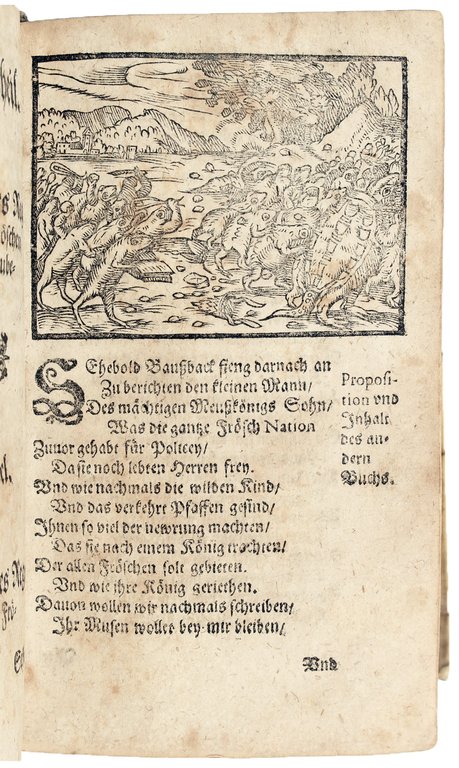 SEhebold Baußback fieng darnach an
Zu berichten den kleinen Mann/
Des mächtigen Meußkönigs Sohn/
Was die gantze Frösch Nation
Zuuor gehabt für Policey/
Da sie noch lebten Herren frey.
Vnd wie nachmals die wilden Kind/
Vnd das verkehrt Pfaffen gesind/
Ihnen so viel der newrung machten/
Das sie nach einem König trachten/
Der allen Fröschen solt gebieten.
Vnd wie ihre König geriethen.
Dauon wollen wir nachmals schreiben/
Ihr Musen wollet bey mir bleiben/
Vnd
Proposi-
tion vnd
Inhalt
des an-
dern
Buchs.